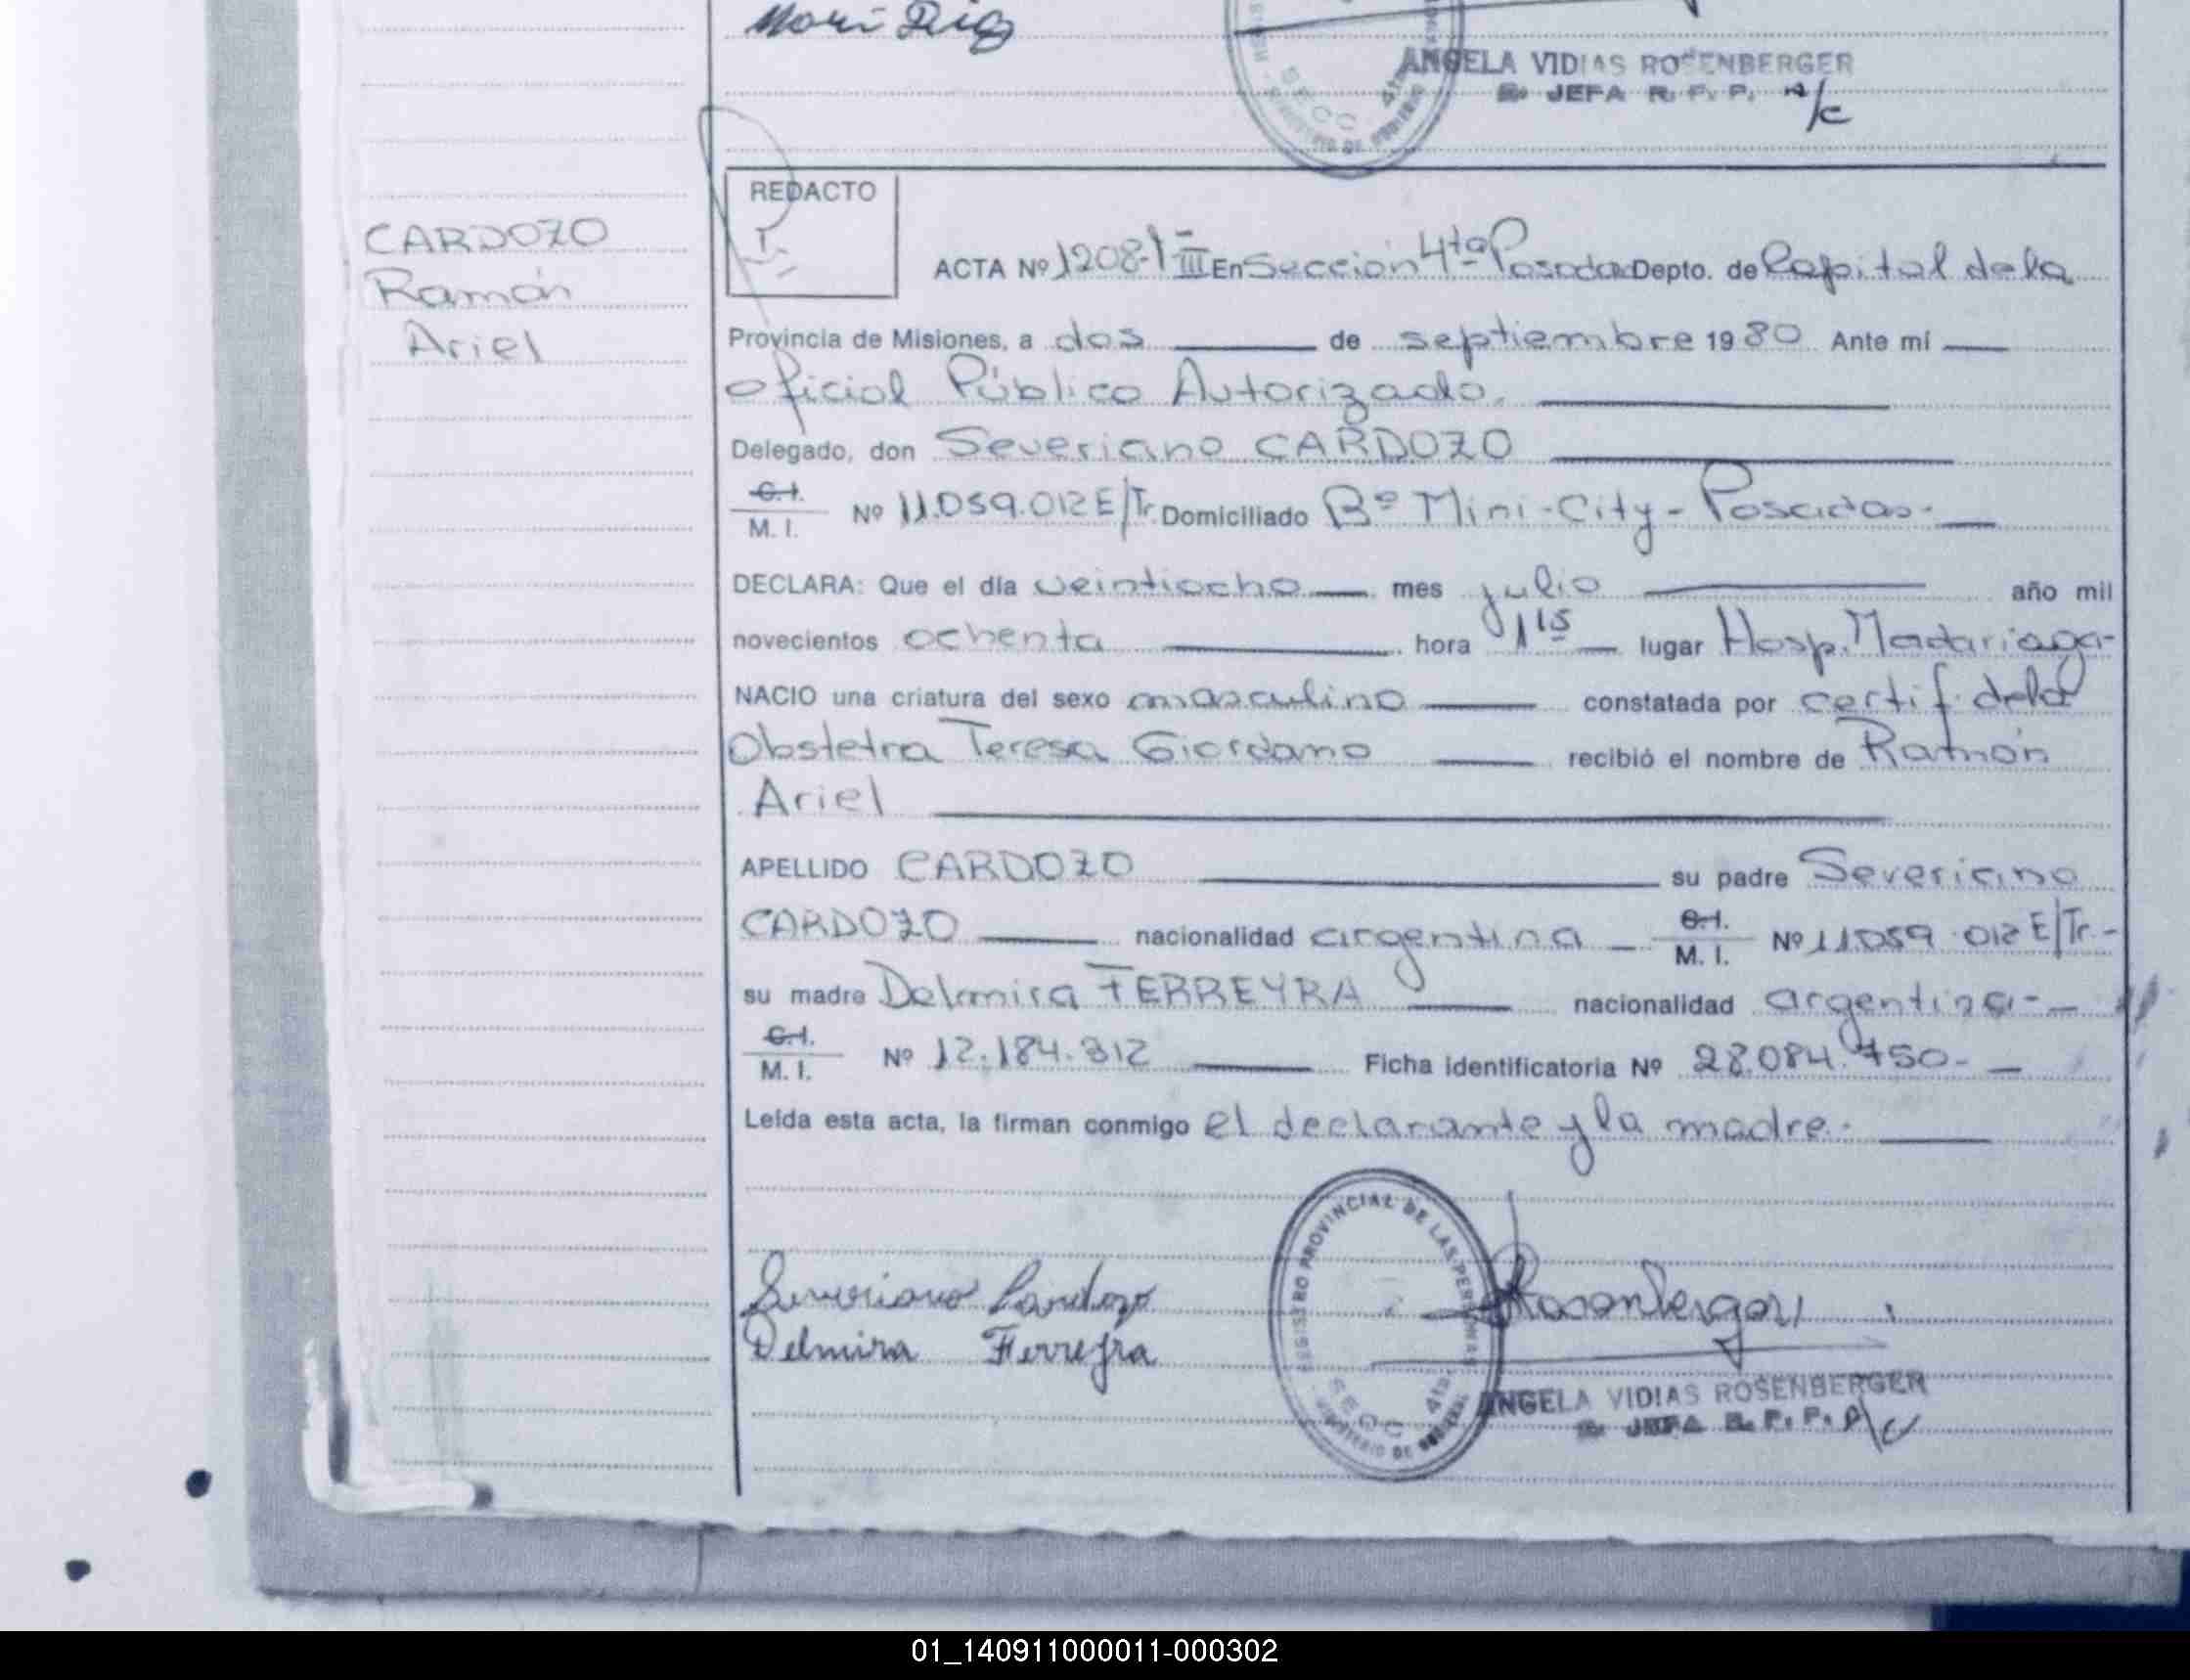 ANGELA VIDIAS ROSENBERGER
JEFA R. P. P. A/C
REDACTO
CARDOZO
Ramón
Ariel
ACTA Nº 1208-T III En Sección 4ta Posadas Depto. de Capital de la
Provincia de Misiones, a dos de septiembre 1980 Ante mí
Oficial Público Autorizado.
Delegado, don Severiano CARDOZO
C.I.
M. I. Nº 11.059.012 E/Tr. Domiciliado Bº Mini-City-Posadas-
DECLARA: Que el día veintiocho mes julio año mil
novecientos ochenta hora 1 15 lugar Hosp. Madariaga-
NACIO una criatura del sexo masculino constatada por certif. de la
Obstetra Teresa Giordano recibió el nombre de Ramón
Ariel
APELLIDO CARDOZO su padre Severiano
CARDOZO nacionalidad argentina C.I.
M. I. Nº 11.059.012 E/Tr.-
su madre Delmira FERREYRA nacionalidad argentina-
C.I.
M. I. Nº 12.184.312 Ficha identificatoria Nº 28.084.750-
Leída esta acta, la firman conmigo el declarante y la madre.-
REGISTRO PROVINCIAL DE LAS PERSONAS
SECC 4ta
MINISTERIO DE GOBIERNO
Severiano Cardozo
Delmira Ferreyra
ANGELA VIDIAS ROSENBERGER
JEFA R. P. P. A/C
01_140911000011-000302